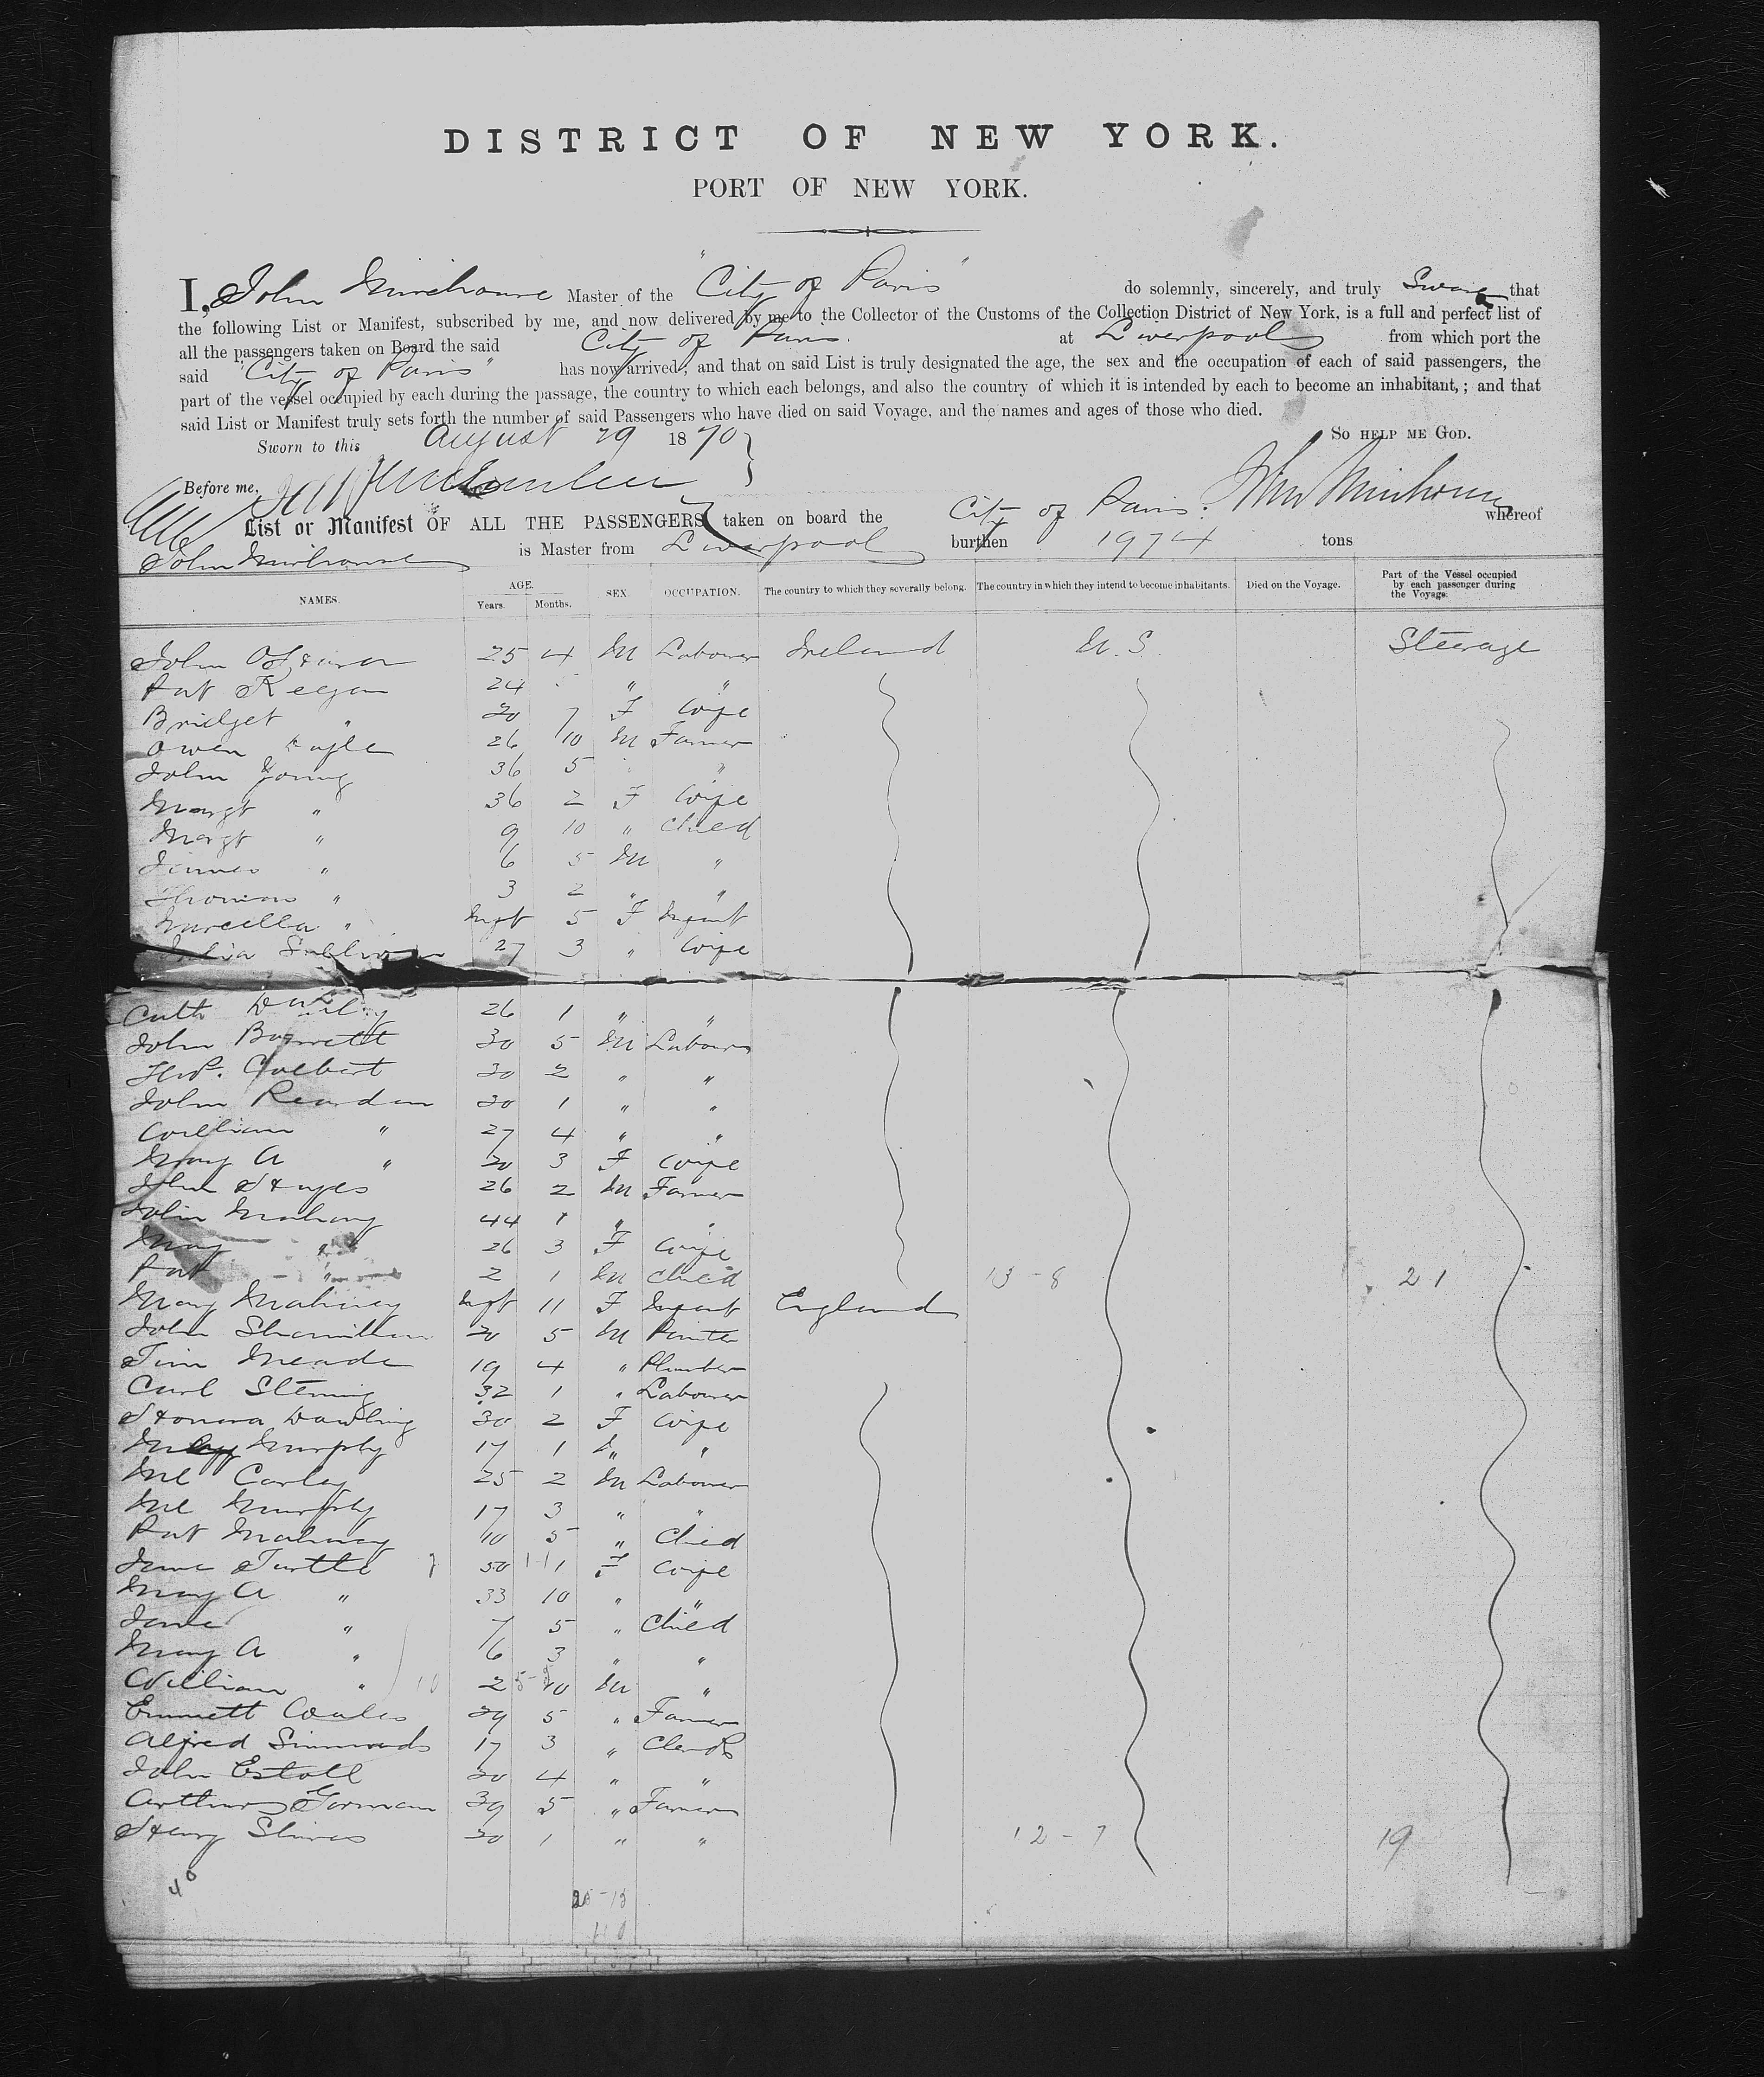 DISTRICT OF NEW YORK.
PORT OF NEW YORK.
I, John Mirehouse Master of the "City of Paris" do solemnly, sincerely, and truly Swear that
the following List or Manifest, subscribed by me, and now delivered by me to the Collector of the Customs of the Collection District of New York, is a full and perfect list of
all the passengers taken on Board the said City of Paris. at Liverpool from which port the
said "City of Paris" has now arrived; and that on said List is truly designated the age, the sex and the occupation of each of said passengers, the
part of the vessel occupied by each during the passage, the country to which each belongs, and also the country of which it is intended by each to become an inhabitant,; and that
said List or Manifest truly sets forth the number of said Passengers who have died on said Voyage, and the names and ages of those who died.
Sworn to this August 29 1870 } So HELP ME GOD.
Before me, John Mirehouse
List or Manifest OF ALL THE PASSENGERS taken on board the City of Paris. whereof
John Mirehouse is Master from Liverpool burthen 1974 tons
NAMES. AGE. Years. Months. SEX. OCCUPATION. The country to which they severally belong. The country in which they intend to become inhabitants. Died on the Voyage. Part of the Vessel occupied by each passenger during the Voyage.
John O'Hara 25 4 M Labourer Ireland U.S. Steerage
Pat Keegan 24 " "
Bridget " 20 7 F Wife
Owen 26 10 M Farmer
John Young 36 5 "
Margt " 36 2 F Wife
Margt " 9 10 " Child
James " 6 5 M "
Thomas " 3 2 " "
Marcella " Inft 5 F Infant
Julia Sullivan 27 3 " Wife
Cath 26 1 " "
John Barrett 30 5 M Labourer
Thos. Culbert 30 2 " "
John Reardon 30 1 " "
William " 27 4 " "
Mary A " 20 3 F Wife
John Hayes 26 2 M Farmer
John Mahony 44 1 " "
Mary " 26 3 F Wife
Pat " 2 1 M Child 13-8 21
Mary Mahoney Inft 11 F Infant England
John 20 5 M Painter
Tim Meade 19 4 " Plumber
Carl 32 1 " Labourer
Honora Dowling 30 2 F Wife
Murphy 17 1 " "
Ml Corley 25 2 M Labourer
Ml Murphy 17 3 " "
Pat Mahoney 10 5 " Child
Jane Turtle 50 11 F Wife
Mary A " 33 10 " "
Jane " 7 5 " Child
Mary A " 6 3 " "
William " 2 10 M "
Emmett Coales 29 5 " Farmer
Alfred Simmonds 17 3 " Clerk
John Estall 20 4 " "
Arthur Gorman 39 5 " Farmer
Henry Shires 20 1 " " 12-7 19
40